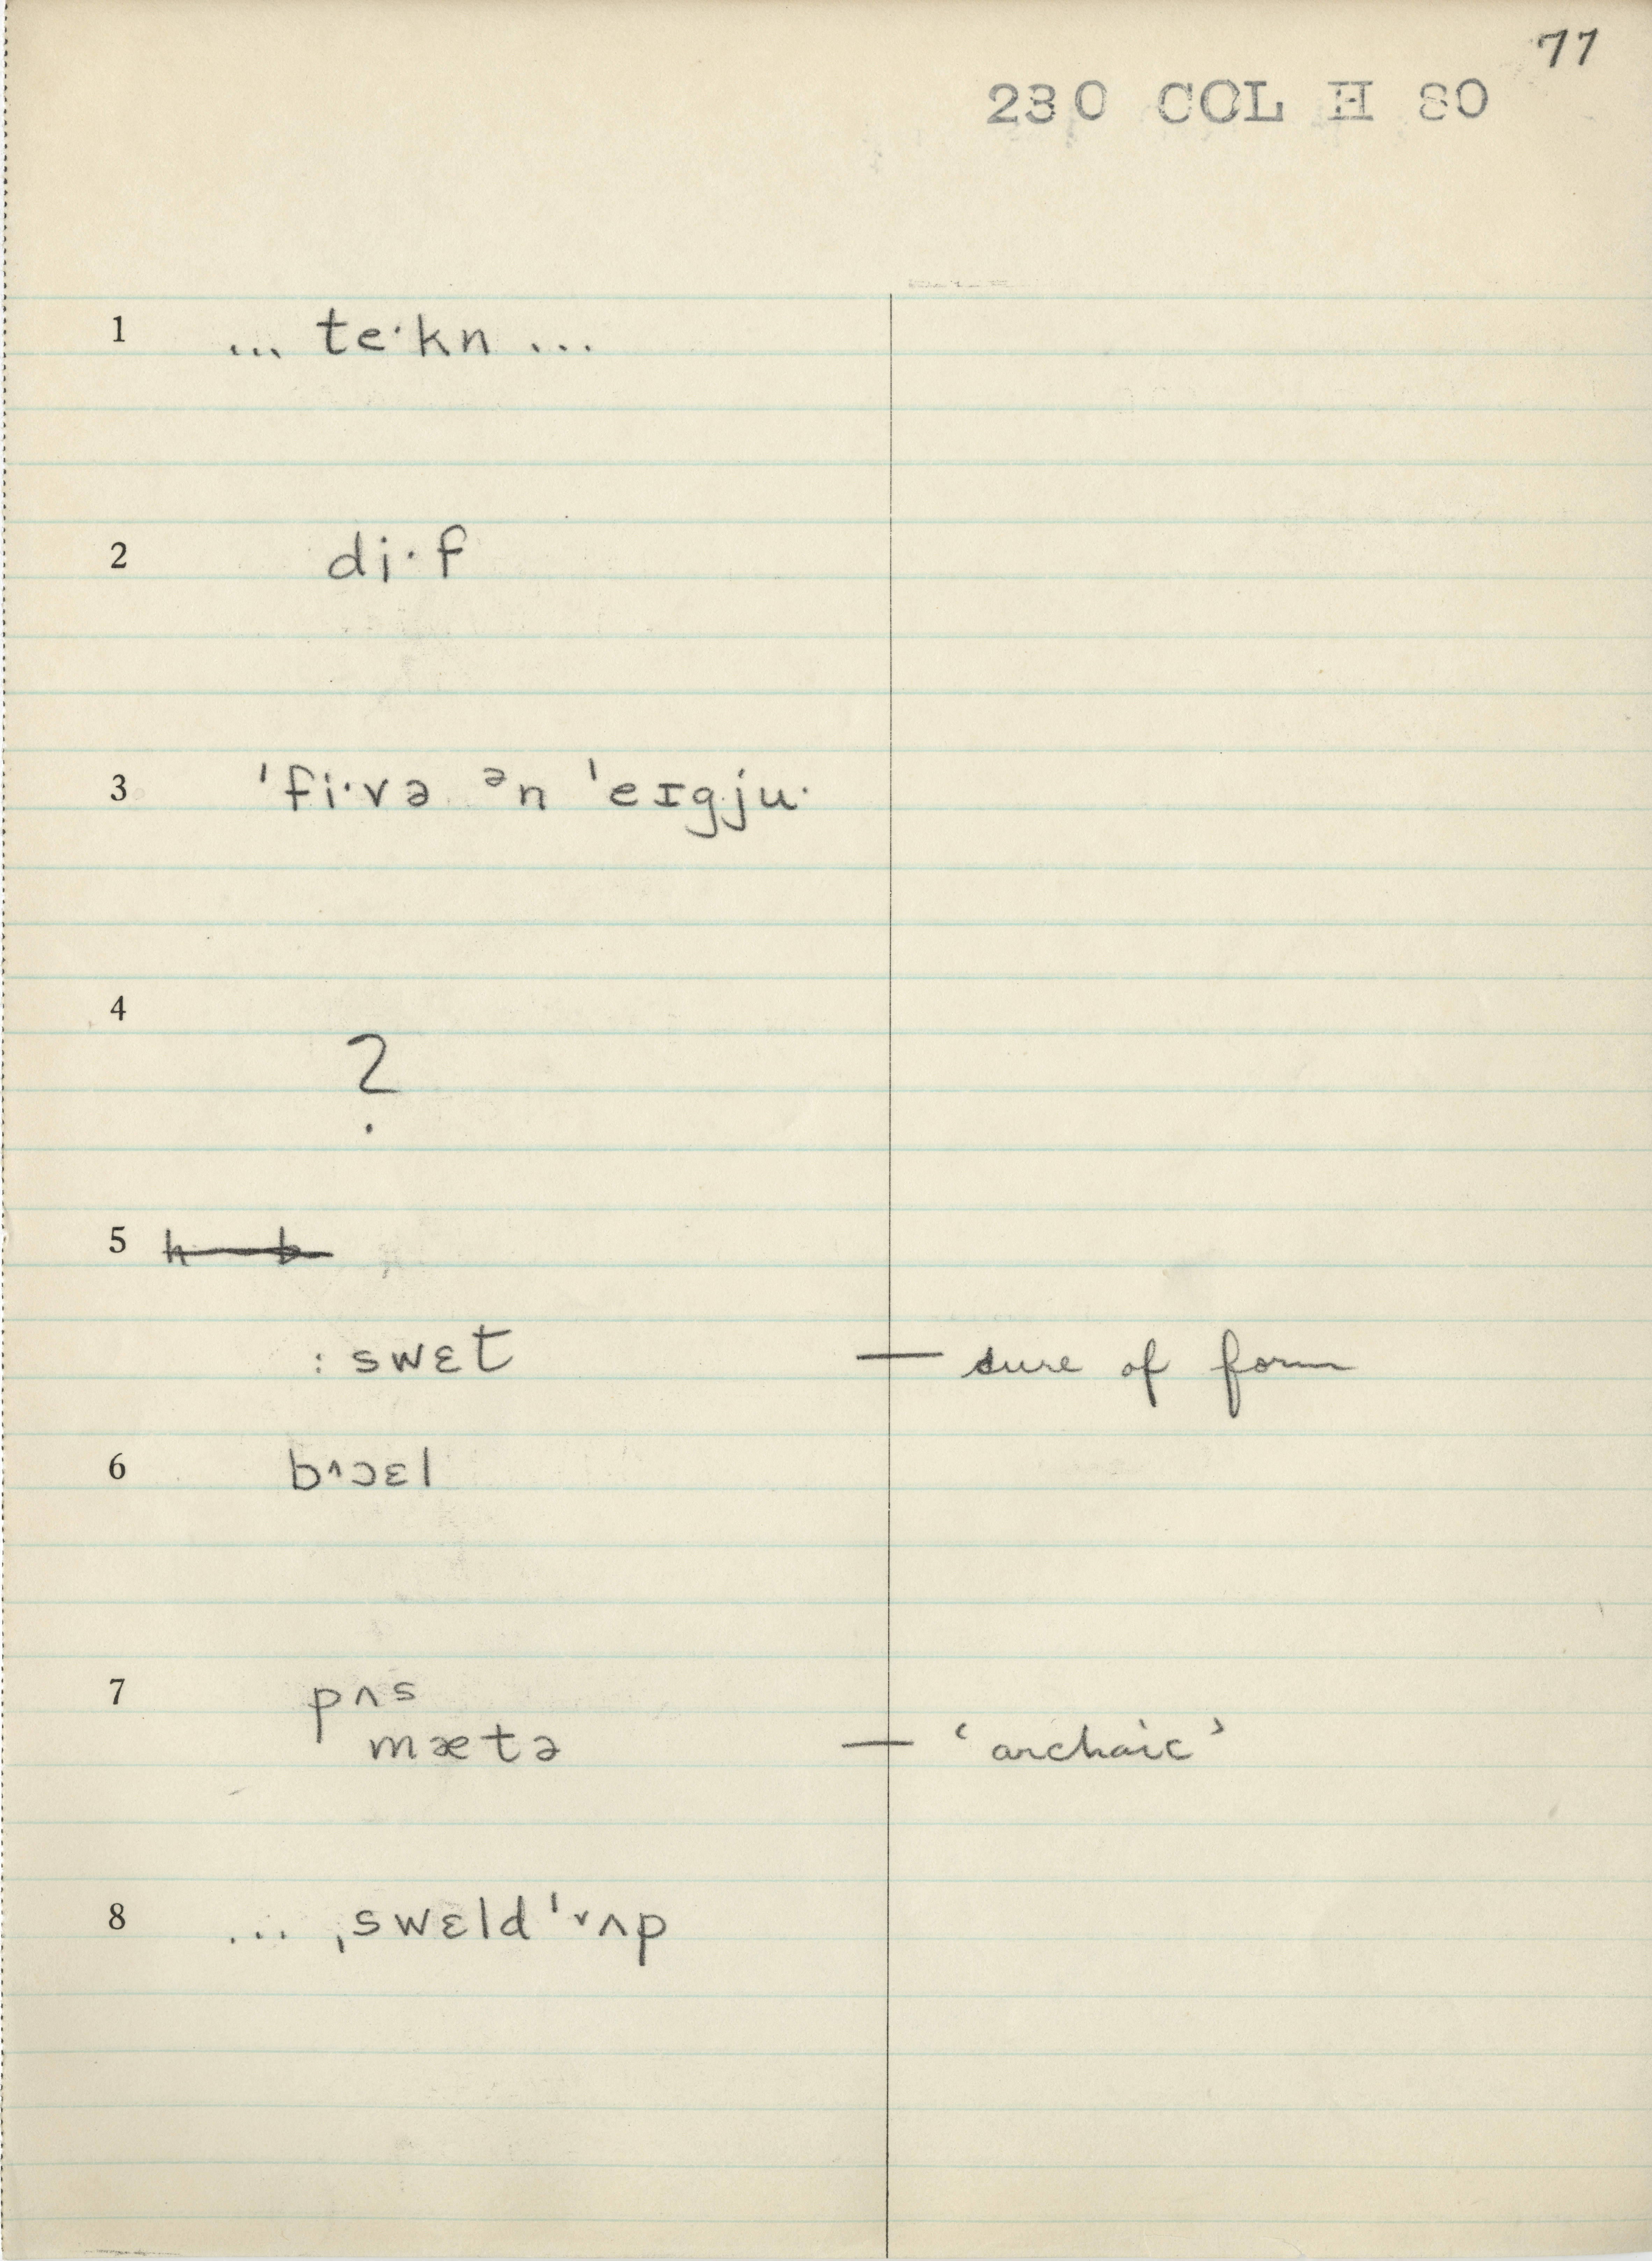 77
230 COL H 80
1 ... te·kn ...
2 di·f
3 ˈfi·və ᵊn ˈeɪgju·
4 ?
5 h b
: swɛt — sure of form
6 b^ɔɛl
7 pʌs
mætə — ‘archaic’
8 ... ˌswɛld ˈᵛʌp